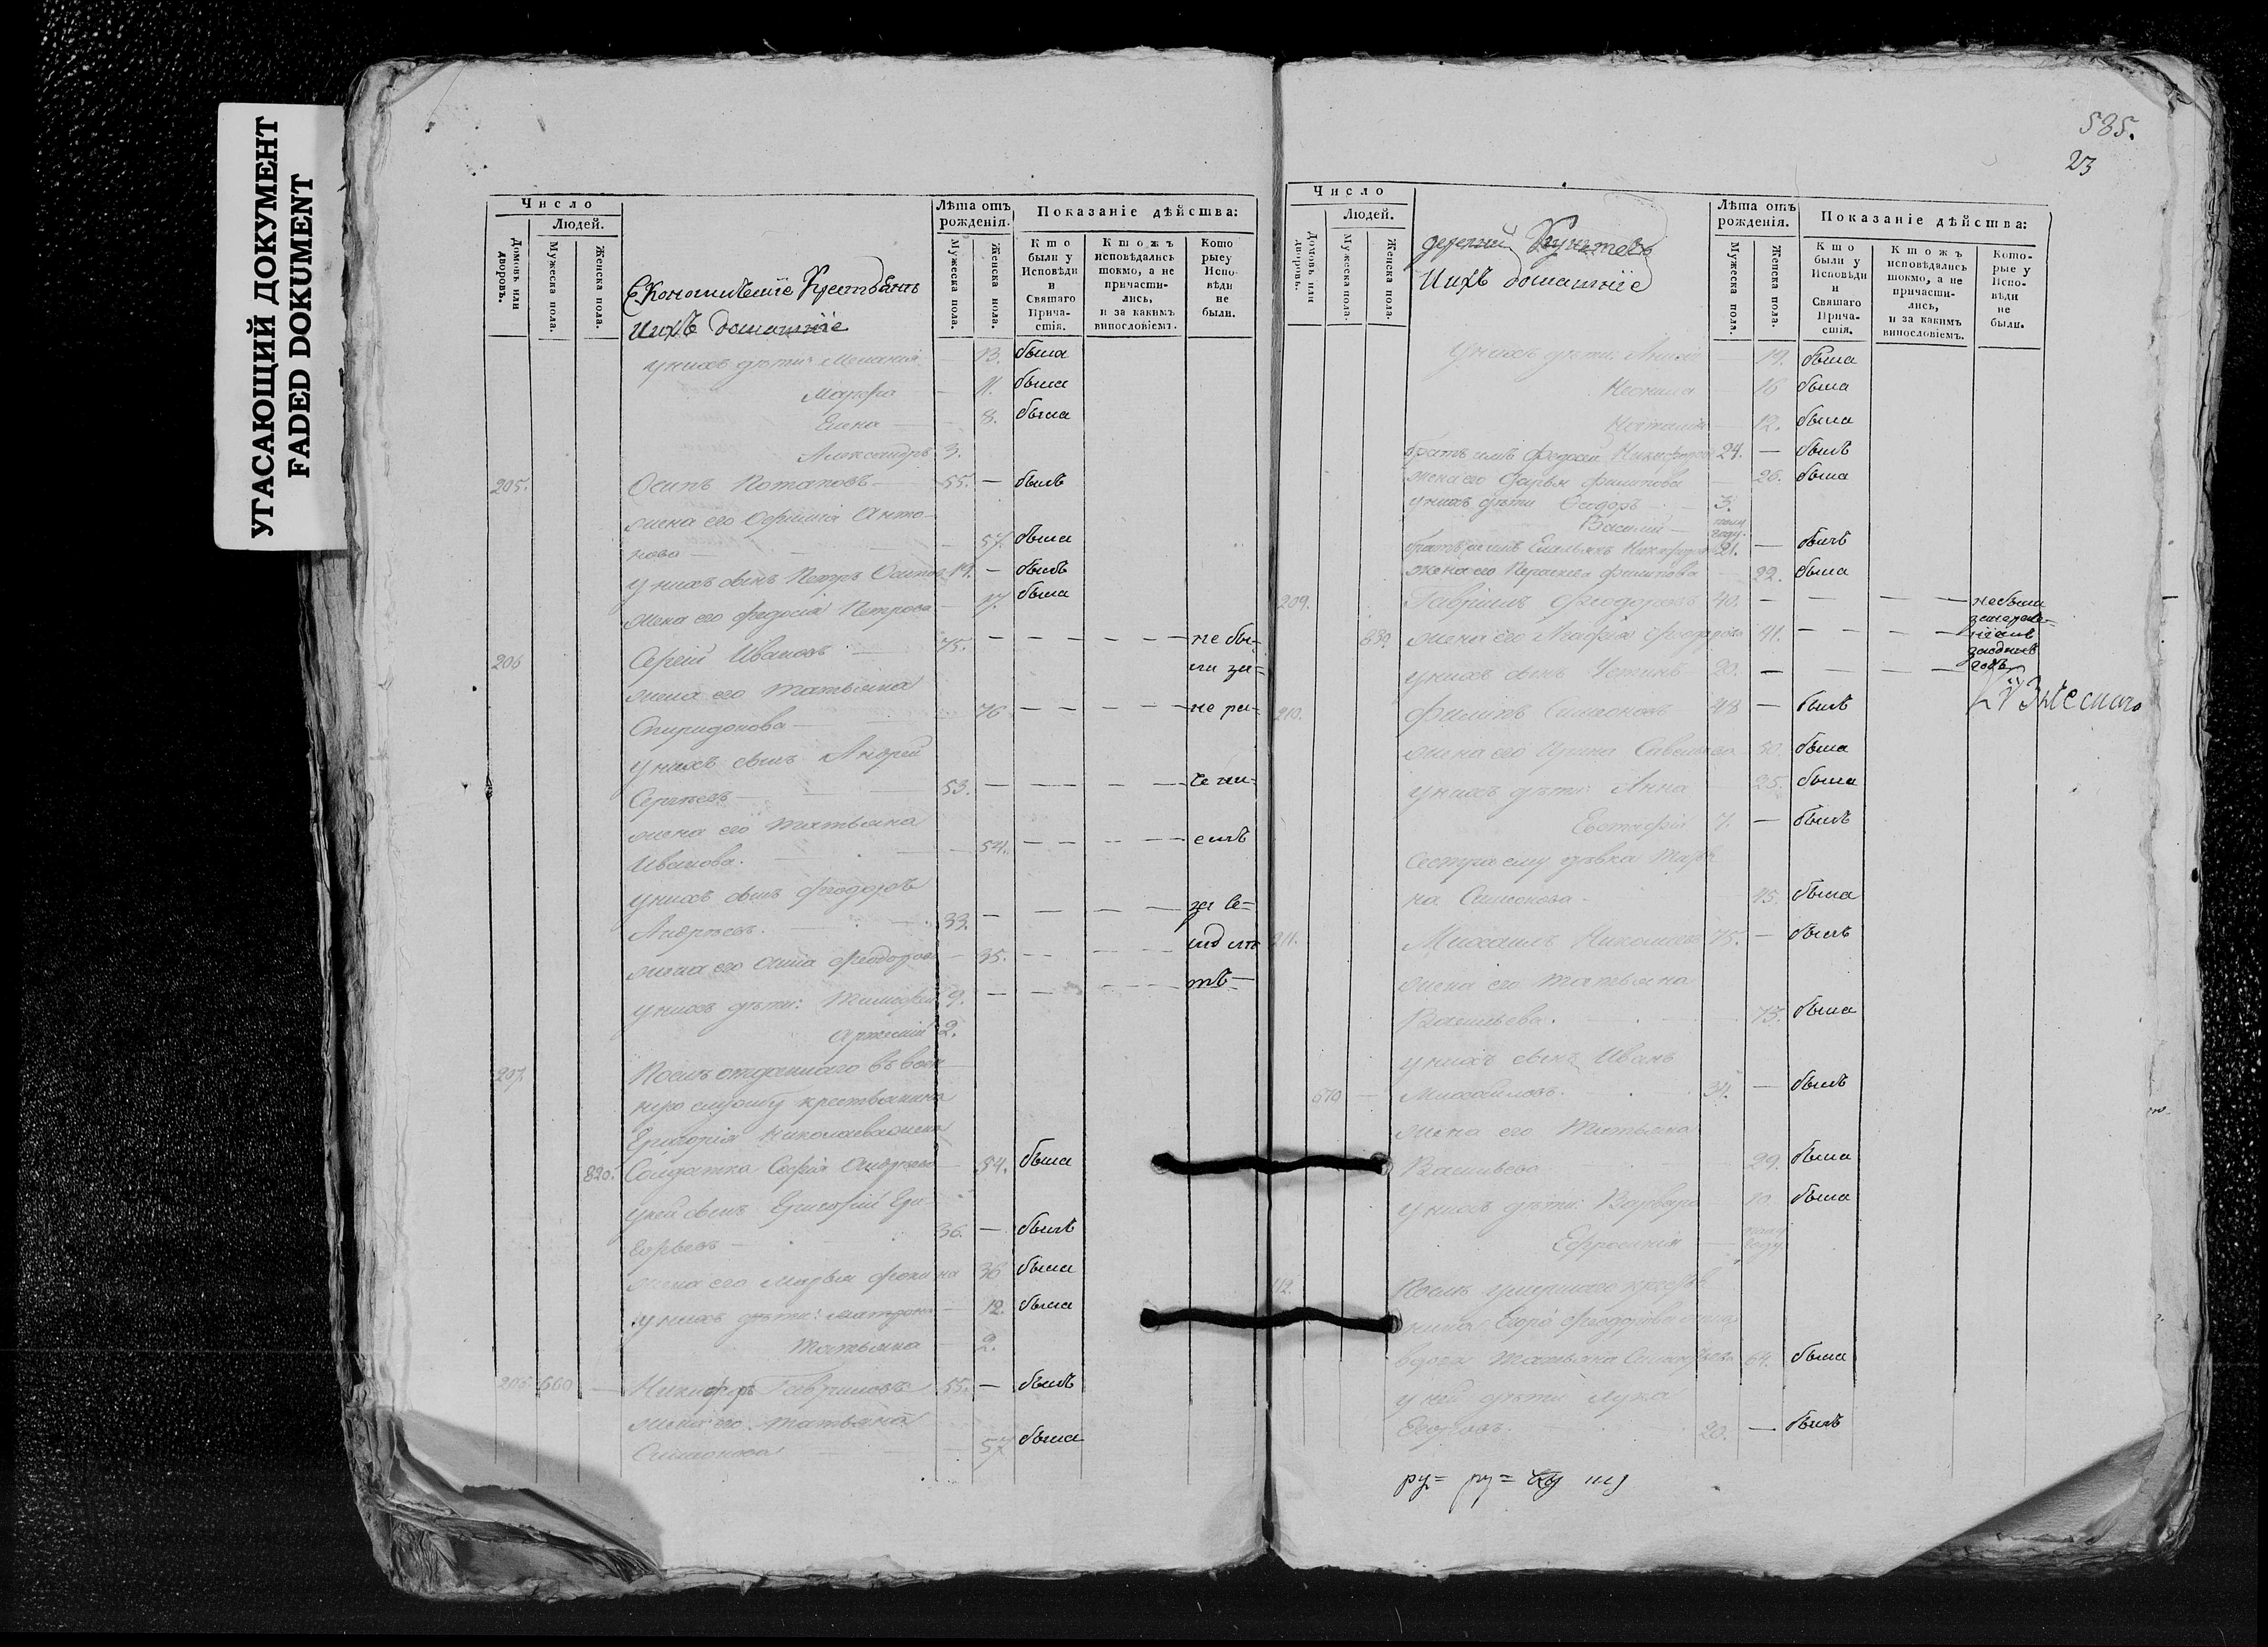 УГАСАЮЩИЙ ДОКУМЕНТ
FADED DOKUMENT
Число
Людей.
Домовъ или дворовъ.
Мужеска пола.
Женска пола.
Экономическіе Крестьянъ
ихъ домашніе
Лѣта отъ рожденія.
Мужеска пола.
Женска пола.
Показаніе дѣйства:
Кто были у Исповѣди и Святаго Прича-стія.
Ктожъ исповѣдались токмо, а не причасти-лись, и за какимъ винословіемъ.
Кото рые у Испо-вѣди не были.
у нихъ дѣти: Меланія — 13. была
Марфа — 11. была
Елена — 8. была
Александръ 3.
205. Осипъ Потаповъ — 55. — былъ
жена его Афимія Анто-
нова — 57. была
у нихъ сынъ Петръ Осиповъ 19. — былъ
жена его Феодосія Петрова — 17. была
206 Сергій Ивановъ — 75. — не бы-
жена его Татьяна
ли за-
Спиридонова — 76 — не ра-
у нихъ сынъ Андрей
Сергѣевъ — 53. — че ни-
жена его Татьяна
Иванова. — 54. — емъ
у нихъ сынъ Феодоръ
Андреевъ. — 33. —
жена его Анна Феодорова — 35. —
у нихъ дѣти: Тимофей 9. —
Артемій 2.
207. Послѣ отданнаго въ воен
ную службу крестьянина
Григорія Николаева жена
820. Солдатка Софія Андреева — 54. была
у ней сынъ Григорій Гри-
горьевъ — 36. — былъ
жена его Марья Фокина 36 была
у нихъ дѣти: Матрона — 12. была
Татьяна — 2.
208 660 — Никифоръ Гавриловъ 55. — былъ
жена его Татьяна
Симонова — 57 была
585.
23
Число
Людей.
Домовъ или дворовъ.
Мужеска пола.
Женска пола.
деревни
ихъ домашніе
Лѣта отъ рожденія.
Мужеска пола.
Женска пола.
Показаніе дѣйства:
Кто были у Исповѣди и Святаго Прича-стія.
Ктожъ исповѣдались токмо, а не причасти-лись, и за какимъ винословіемъ.
Кото-рые у Испо-вѣди не были.
у нихъ дѣти: — 19. была
16 была
Наталія — 12. была
братъ имъ Федосей Никифоровъ 24. — былъ
жена его Дарья Филипова — 26. была
у нихъ дѣти Сидоръ — 3.
Василій — полу году.
братъ имъ Емельянъ Никифоровъ 21. — былъ
жена его Параскева Филипова 22. была
209. Гаврiилъ Феодоровъ 40. — не были
830. жена его Агафія Феодорова 41. —
у нихъ сынъ 20. —
210. Филипъ Симоновъ 48 — былъ
жена его Ирина Савельева 50. была
у нихъ дѣти: Анна 25. была
Евстафій 7. — былъ
Сестра ему дѣвка Тать-
на Симонова — 45. была
211. Михаилъ Николаевъ 75. — былъ
жена его Татьяна
Васильева. — 73. была
у нихъ сынъ Иванъ
670 — Михайловъ. 34. — былъ
жена его Татьяна
Васильева 29. была
у нихъ дѣти: Варвара 10. была
Ефросинія — полу году.
212. Послѣ умершаго крестья
нина Егора Феодорова жена
вдова Татьяна 64. была
у ней дѣти Лука
Егоровъ. 20. — былъ